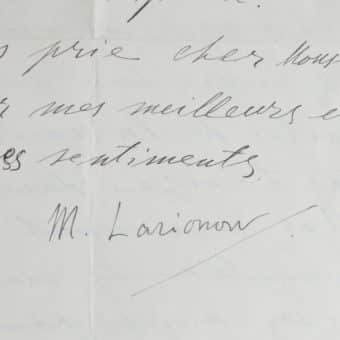 prie cher Mons
mes meilleurs e
es sentiments.
M. Larionow